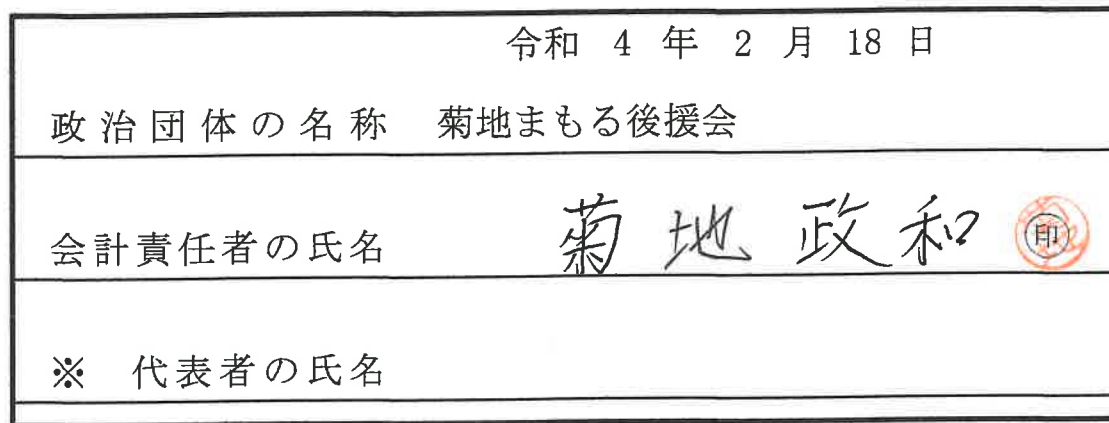 令和 4 年 2 月 18 日
政治団体の名称 菊地まもる後援会
会計責任者の氏名 菊地 政和 印
※ 代表者の氏名